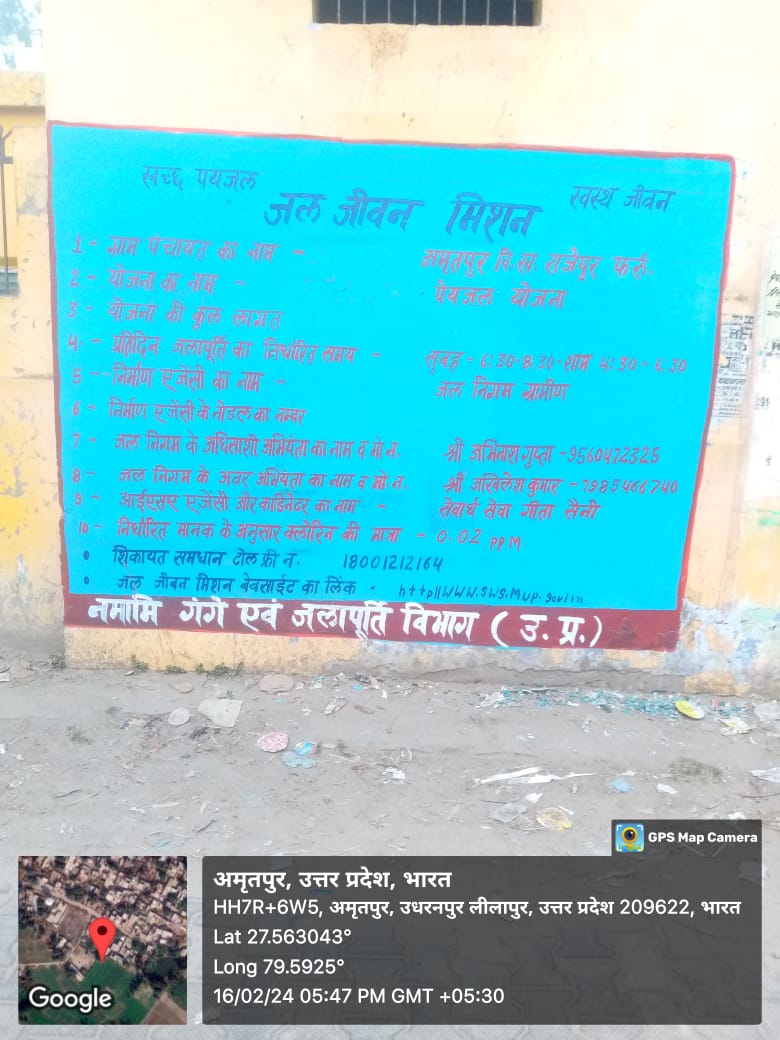 स्वच्छ पयजल
स्वस्थ जीवन
जल जीवन मिशन
1 - ग्राम पंचायत का नाम - अमृतपुर वि.ख. राजेपुर फर्रु.
2 - योजना का नाम - पेयजल योजना
3 - योजना की कुल लागत
4 - प्रतिदिन जलापूर्ति का निर्धारित समय - सुबह - 6:30-8:30-शाम 4:30 - 6:30
5 - निर्माण एजेंसी का नाम - जल निगम ग्रामीण
6 - निर्माण एजेंसी के नोडल का नम्बर
7 - जल निगम के अधिसाशी अभियंता का नाम व मो.न. श्री अभिनाश गुप्ता -9560472325
8 - जल निगम के अवर अभियंता का नाम व मो.न. श्री अखिलेश कुमार -7985466740
9 - आईएसए एजेंसी और कार्डिनेटर का नाम - सेवार्थ सेवा गीता सैनी
10 - निर्धारित मानक के अनुसार क्लोरिन की मात्रा - 0.02 PPM
• शिकायत समधान टोल फ्री न. 18001212164
• जल जीवन मिशन बेबसाईट का लिंक - http||WWW.SWS.MUP.gov|in
नमामि गंगे एवं जलापूर्ति विभाग ( उ. प्र. )
GPS Map Camera
अमृतपुर, उत्तर प्रदेश, भारत
HH7R+6W5, अमृतपुर, उधरनपुर लीलापुर, उत्तर प्रदेश 209622, भारत
Lat 27.563043°
Long 79.5925°
16/02/24 05:47 PM GMT +05:30
Google